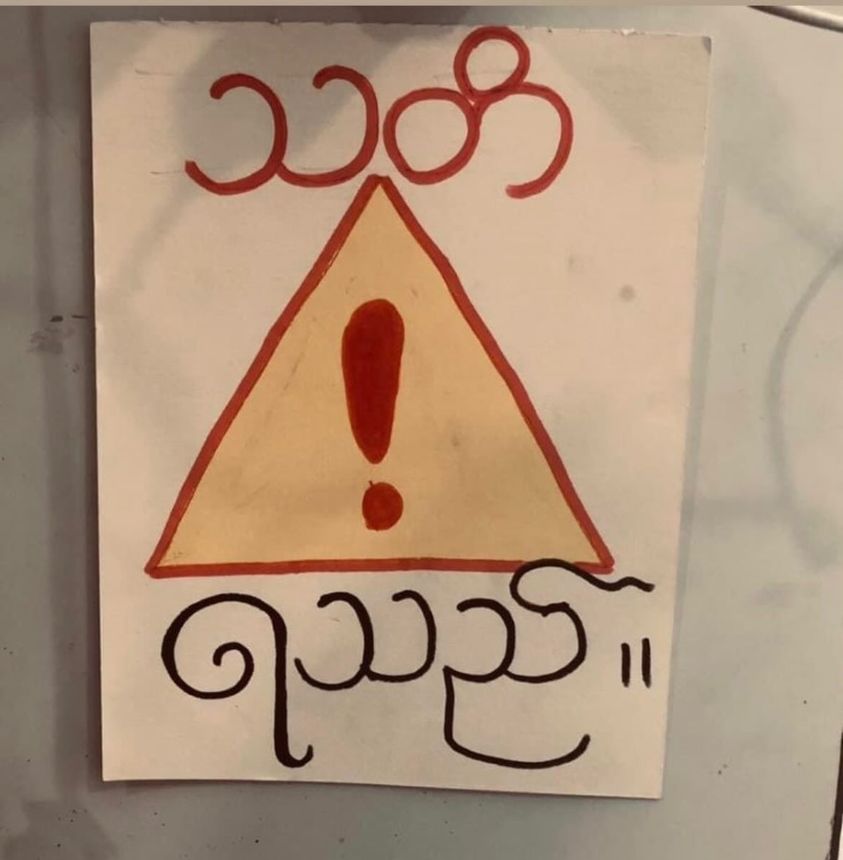 သတိ
ရသည်။